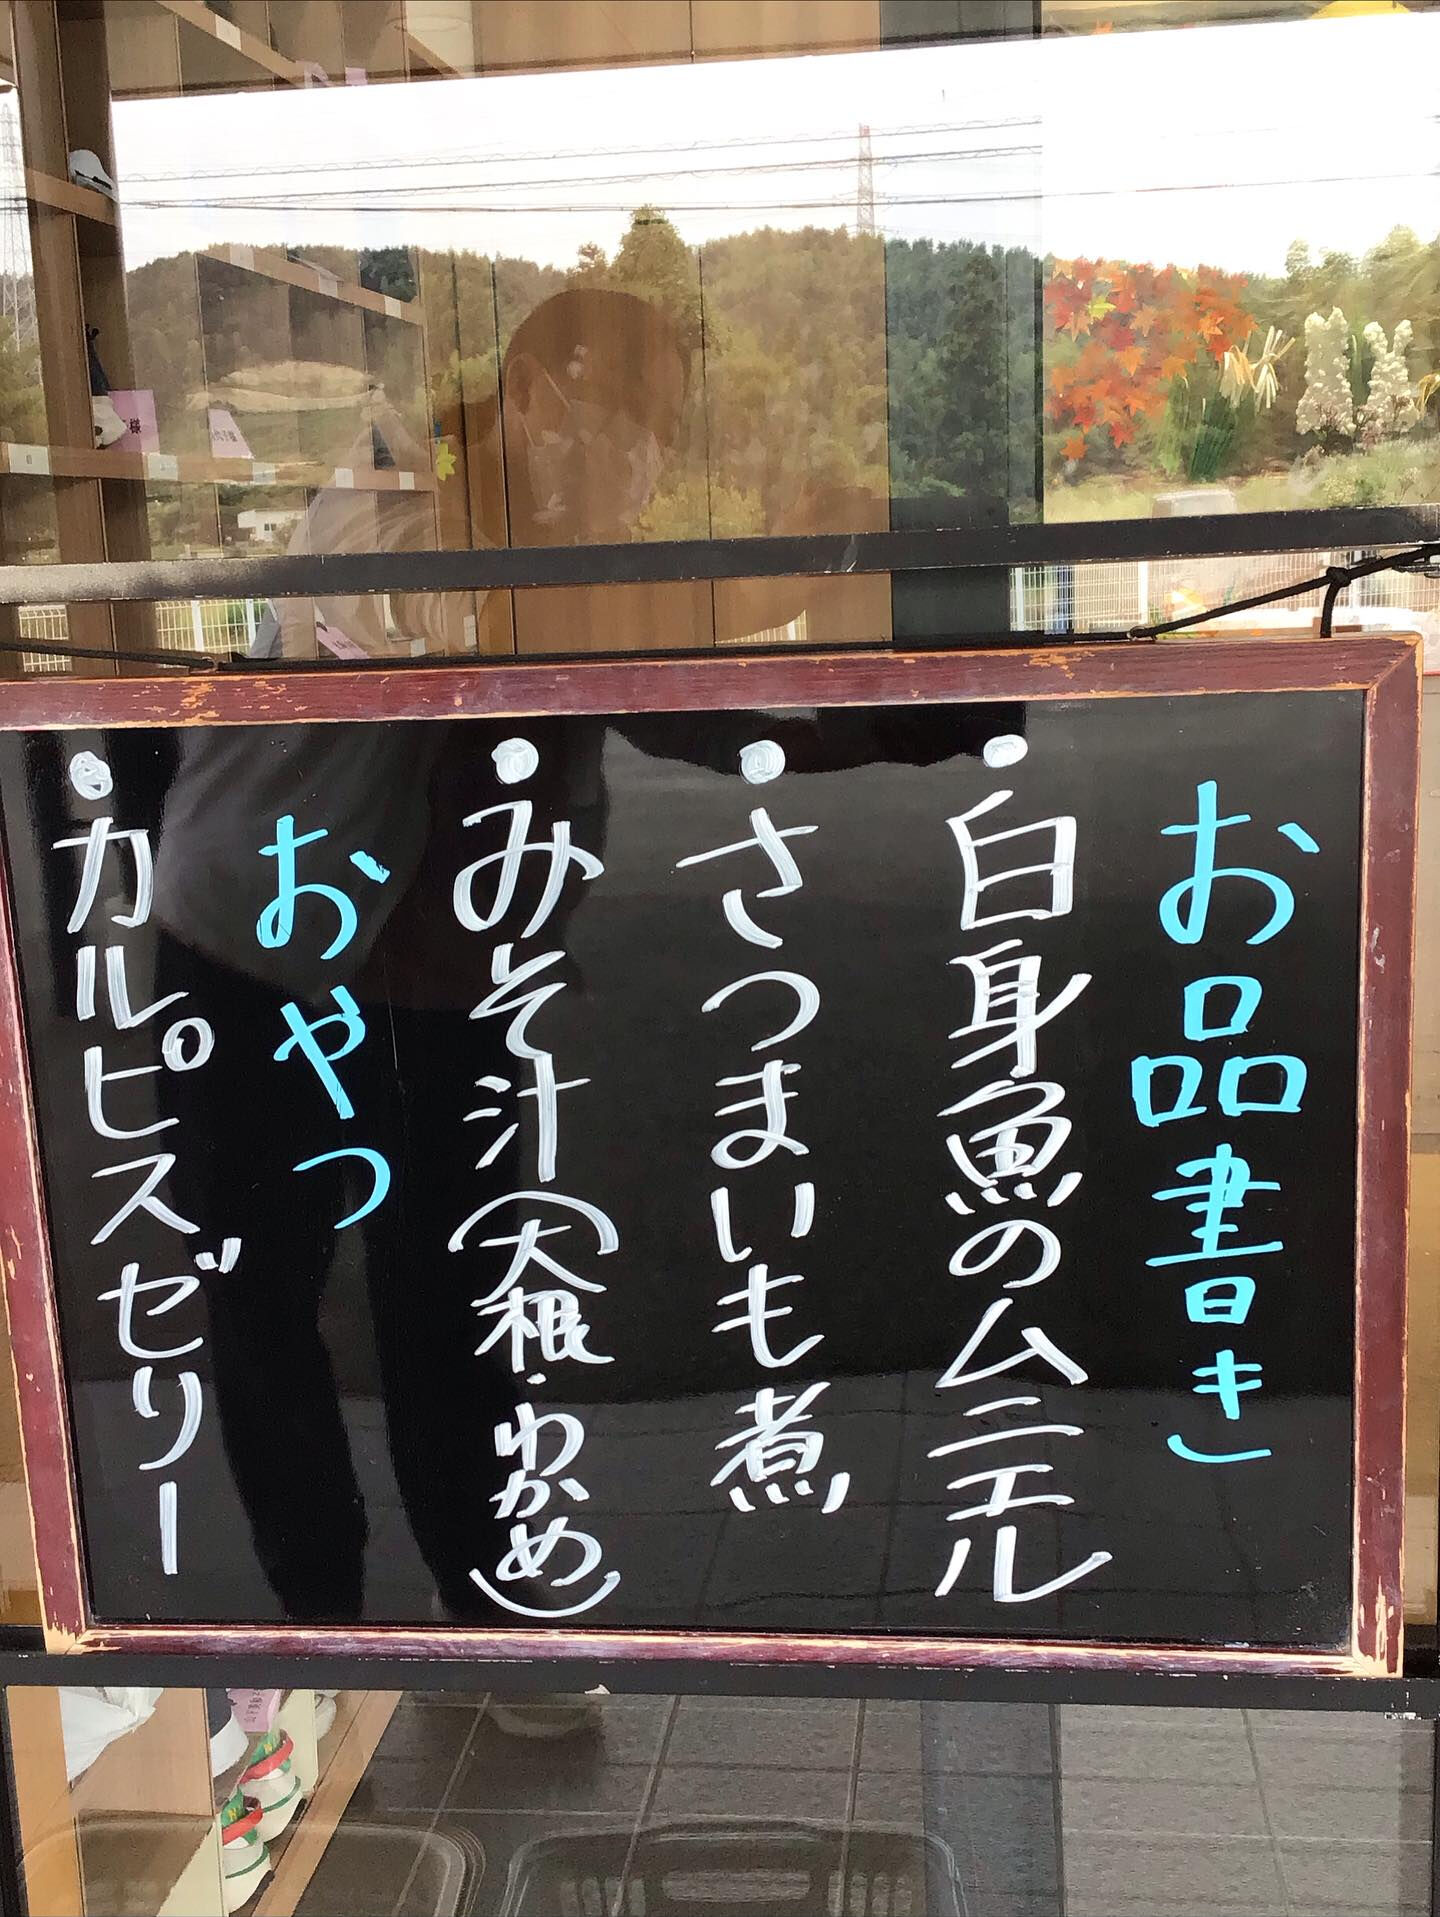 お品書き
・白身魚のムニエル
・さつまいも煮
・みそ汁(大根・わかめ)
おやつ
・カルピスゼリー